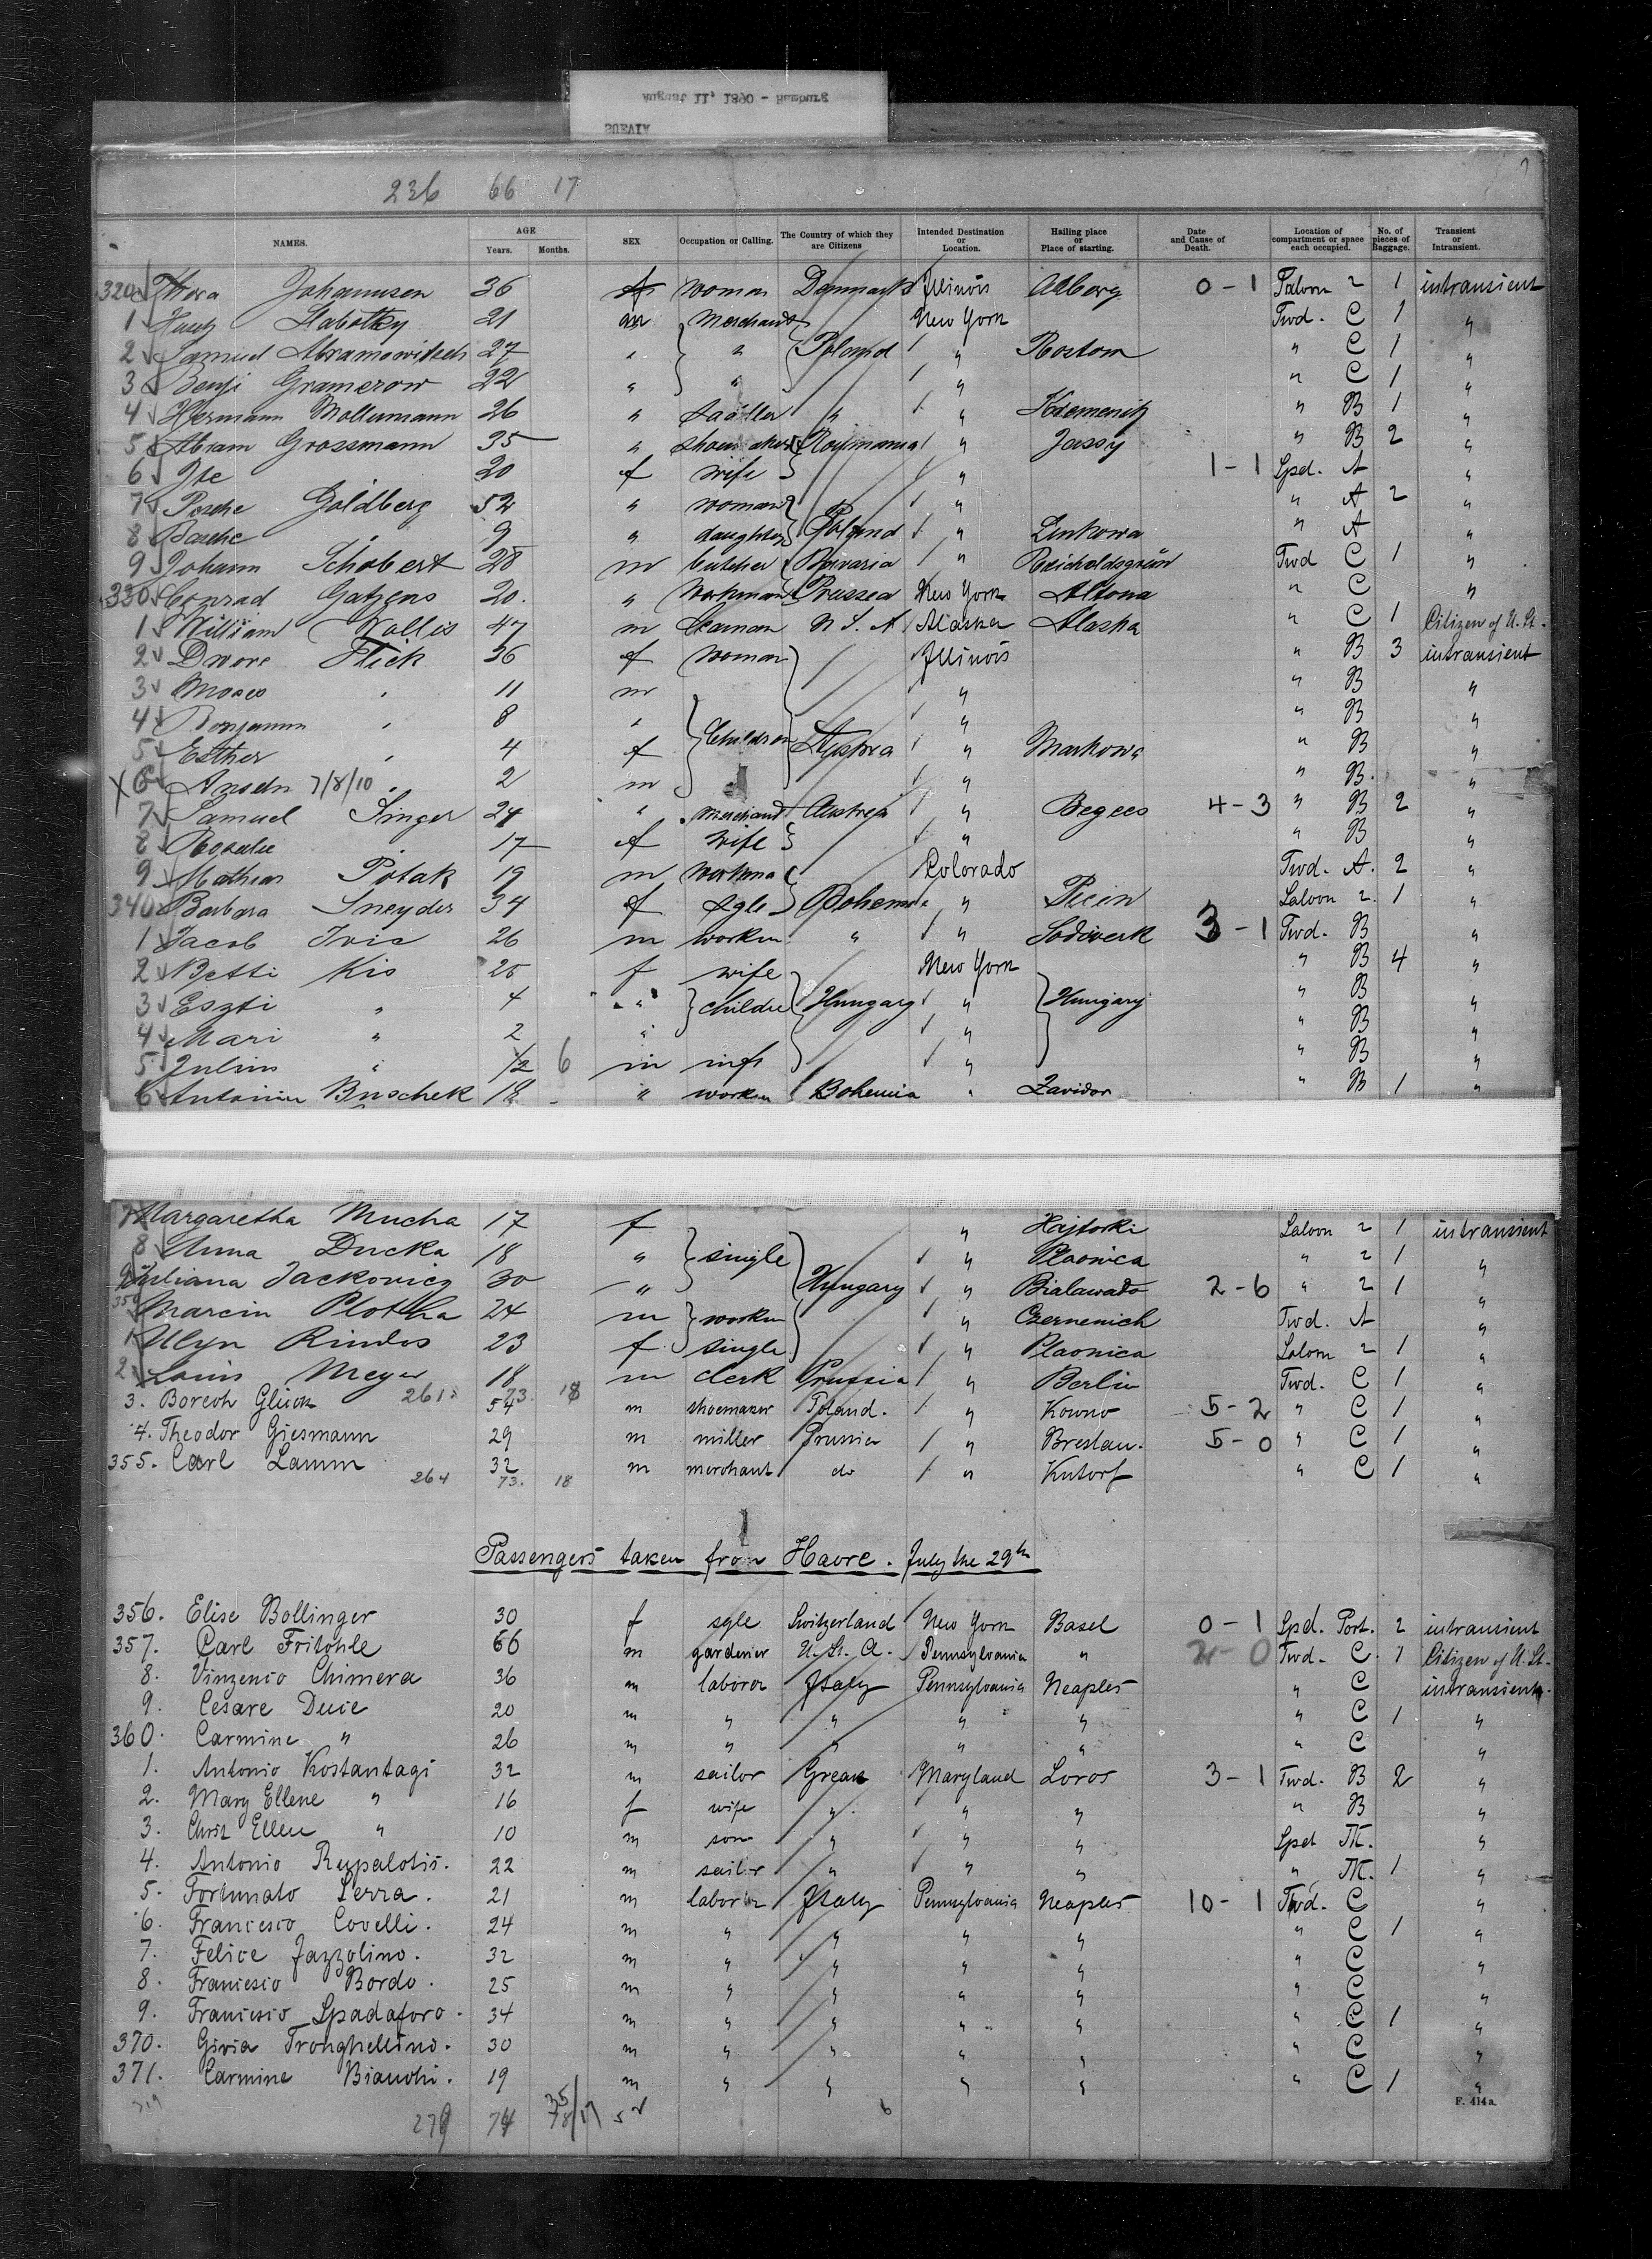 August 11, 1890 - Hamburg
SUEVIA
236 66 17
NAMES. AGE Years. Months. SEX Occupation or Calling. The Country of which they are Citizens Intended Destination or Location. Hailing place or Place of starting. Date and Cause of Death. Location of compartment or space each occupied. No. of pieces of Baggage. Transient or Intransient.
320 Thora Johannsen 36 f woman Denmark Illinois Alberg 0-1 Saloon 2 1 intransient
1 Slabotky 21 m Merchant New York Twd. C 1 "
2 Samuel Abramowitsch 27 " " Poland " Rostom " C 1 "
3 Benji Gramerow 22 " " " " C 1 "
4 Hermann Mollermann 26 " sadller " " Kremenitz " B 1 "
5 Abram Grossmann 35 " shoemaker Roumania " Jassy " B 2 "
6 Ite 20 f wife " 1-1 Spd. A "
7 Pesche Goldberg 52 " woman " " A 2 "
8 Basche " 9 " daughter Poland " Linkowa " A "
9 Johann Schobert 28 m butcher Bavaria " Reicholdsgrün Twd C 1 "
330 Conrad Gatzens 20. " Workman Prussia New York Altona " C "
1 William Wallis 47 m Seaman U S. A Alaska Alaska " C 1 Citizen of U. St.
2 Dwore Flick 36 f woman Illinois " B 3 intransient
3 Moses " 11 m " " B "
4 Benjamin " 8 " " " B "
5 Esther " 4 f Children Austria " Markowa " B "
X 6 7/8/10 " 2 m " " B. "
7 Samuel Singer 24 " Merchand Austria " Begees 4-3 " B 2 "
8 Rosalie 17 f Wife " " B "
9 Mathias Potak 19 m workma Colorado Twd. A. 2 "
340 Barbara Sneyder 34 f sgle Bohemia " Picin Saloon 2. 1 "
1 Jacob Ivic 26 m workm " " Sodwerk 3-1 Twd. B "
2 Betti Kis 25 f wife New York " B 4 "
3 Eszti " 4 " childre Hungary " Hungary " B "
4 Mari " 2 " " " B "
5 Julius " 1/2 6 m inft " " B "
6 Antonin Buschek 18 " workm Bohemia " Zavidor " B 1 "
7 Margaretha Mucha 17 f " Hajtorki Saloon 2 1 intransient
8 Anna Ducka 18 " single " Plaonica " 2 1 "
9 Juliana Jackovicz 30 " Hungary " Bialawado 2-6 " 2 1 "
350 Marcin Plotcha 24 m workm " Czernenich Twd. A "
1 Ulyn Rindos 23 f single " Plaonica Saloon 2 1 "
2 Louis Meyer 18 m clerk Prussia " Berlin Twd. C 1 "
261 73. 18
3. Boreoh Glück 54 m shoemaker Poland. " Kowno 5-2 " C 1 "
4. Theodor Giesmann 29 m miller Prussia " Breslau. 5-0 " C 1 "
355. Carl Lamm 32 m merchant do " Kutorf " C 1 "
264 73. 18
Passengers taken from Havre. July the 29th
356. Elise Bollinger 30 f sgle Switzerland New York Basel 0-1 Spd. Port. 2 intransient
357. Carl Fritohle 66 m gardener U. St. A. Pennsylvania " 2-0 Twd. C. 1 Citizen of U. St.
8. Vinzenio Chimera 36 m laborer Italy Pennsylvania Neaples " C intransient.
9. Cesare Ducie 20 m " " " " " C 1 "
360. Carmine " 26 m " " " " " C "
1. Antonio Kostantagi 32 m sailor Greak Maryland Loros 3-1 Twd. B 2 "
2. Mary Ellene " 16 f wife " " " " B "
3. Chris Ellen " 10 m son " " " Spd M. "
4. Antonio Repalotis. 22 m sailor " " " " M. 1 "
5. Fortunato Serra. 21 m laborer Italy Pennsylvania Neaples 10-1 Twd. C "
6. Francesco Covelli. 24 m " " " " " C 1 "
7. Felice Jazzolino. 32 m " " " " " C "
8. Francesco Bordo. 25 m " " " " " C "
9. Francesco Spadaforo. 34 m " " " " " C 1 "
370. Givia Tronghellino. 30 m " " " " " C "
371. Carmine Bianohi. 19 m " " " " " C 1 "
279 74
F. 414a.